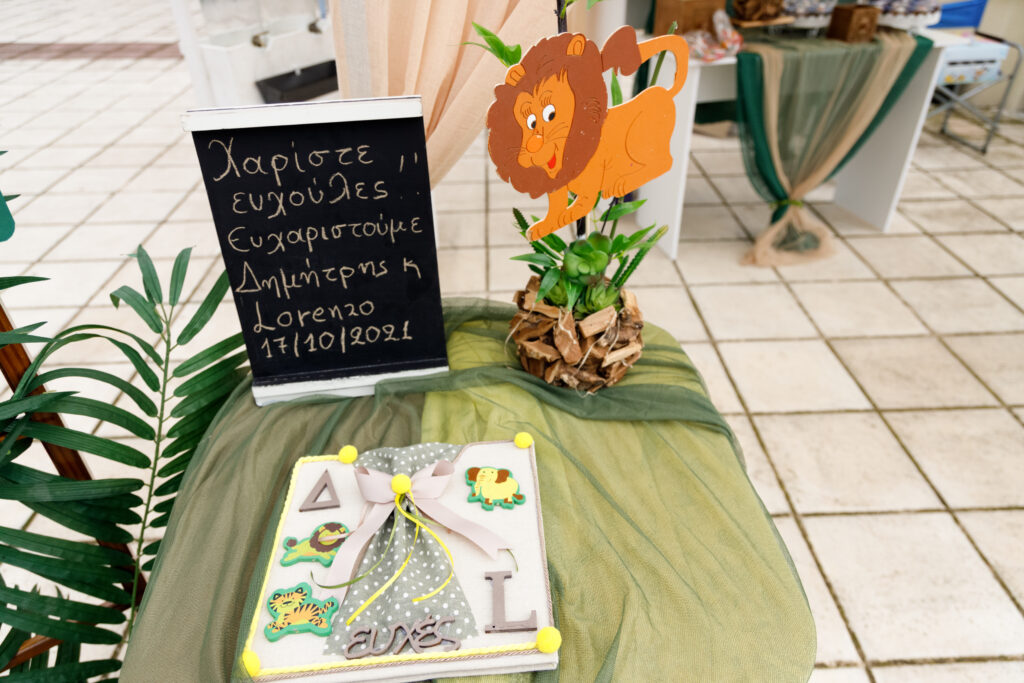 Χαρίστε
ευχούλες.
Ευχαριστούμε
Δημήτρης κ
Lorenzo
17/10/2021
Δ
L
ευχές